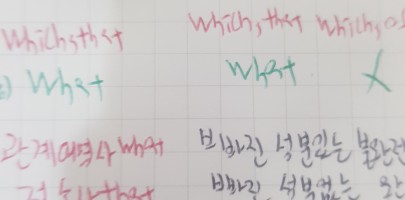 which,that which,that which,
What What X
관계대명사 what 빠진 성분있는 불완전
접속사 that 빠진 성분없는 완